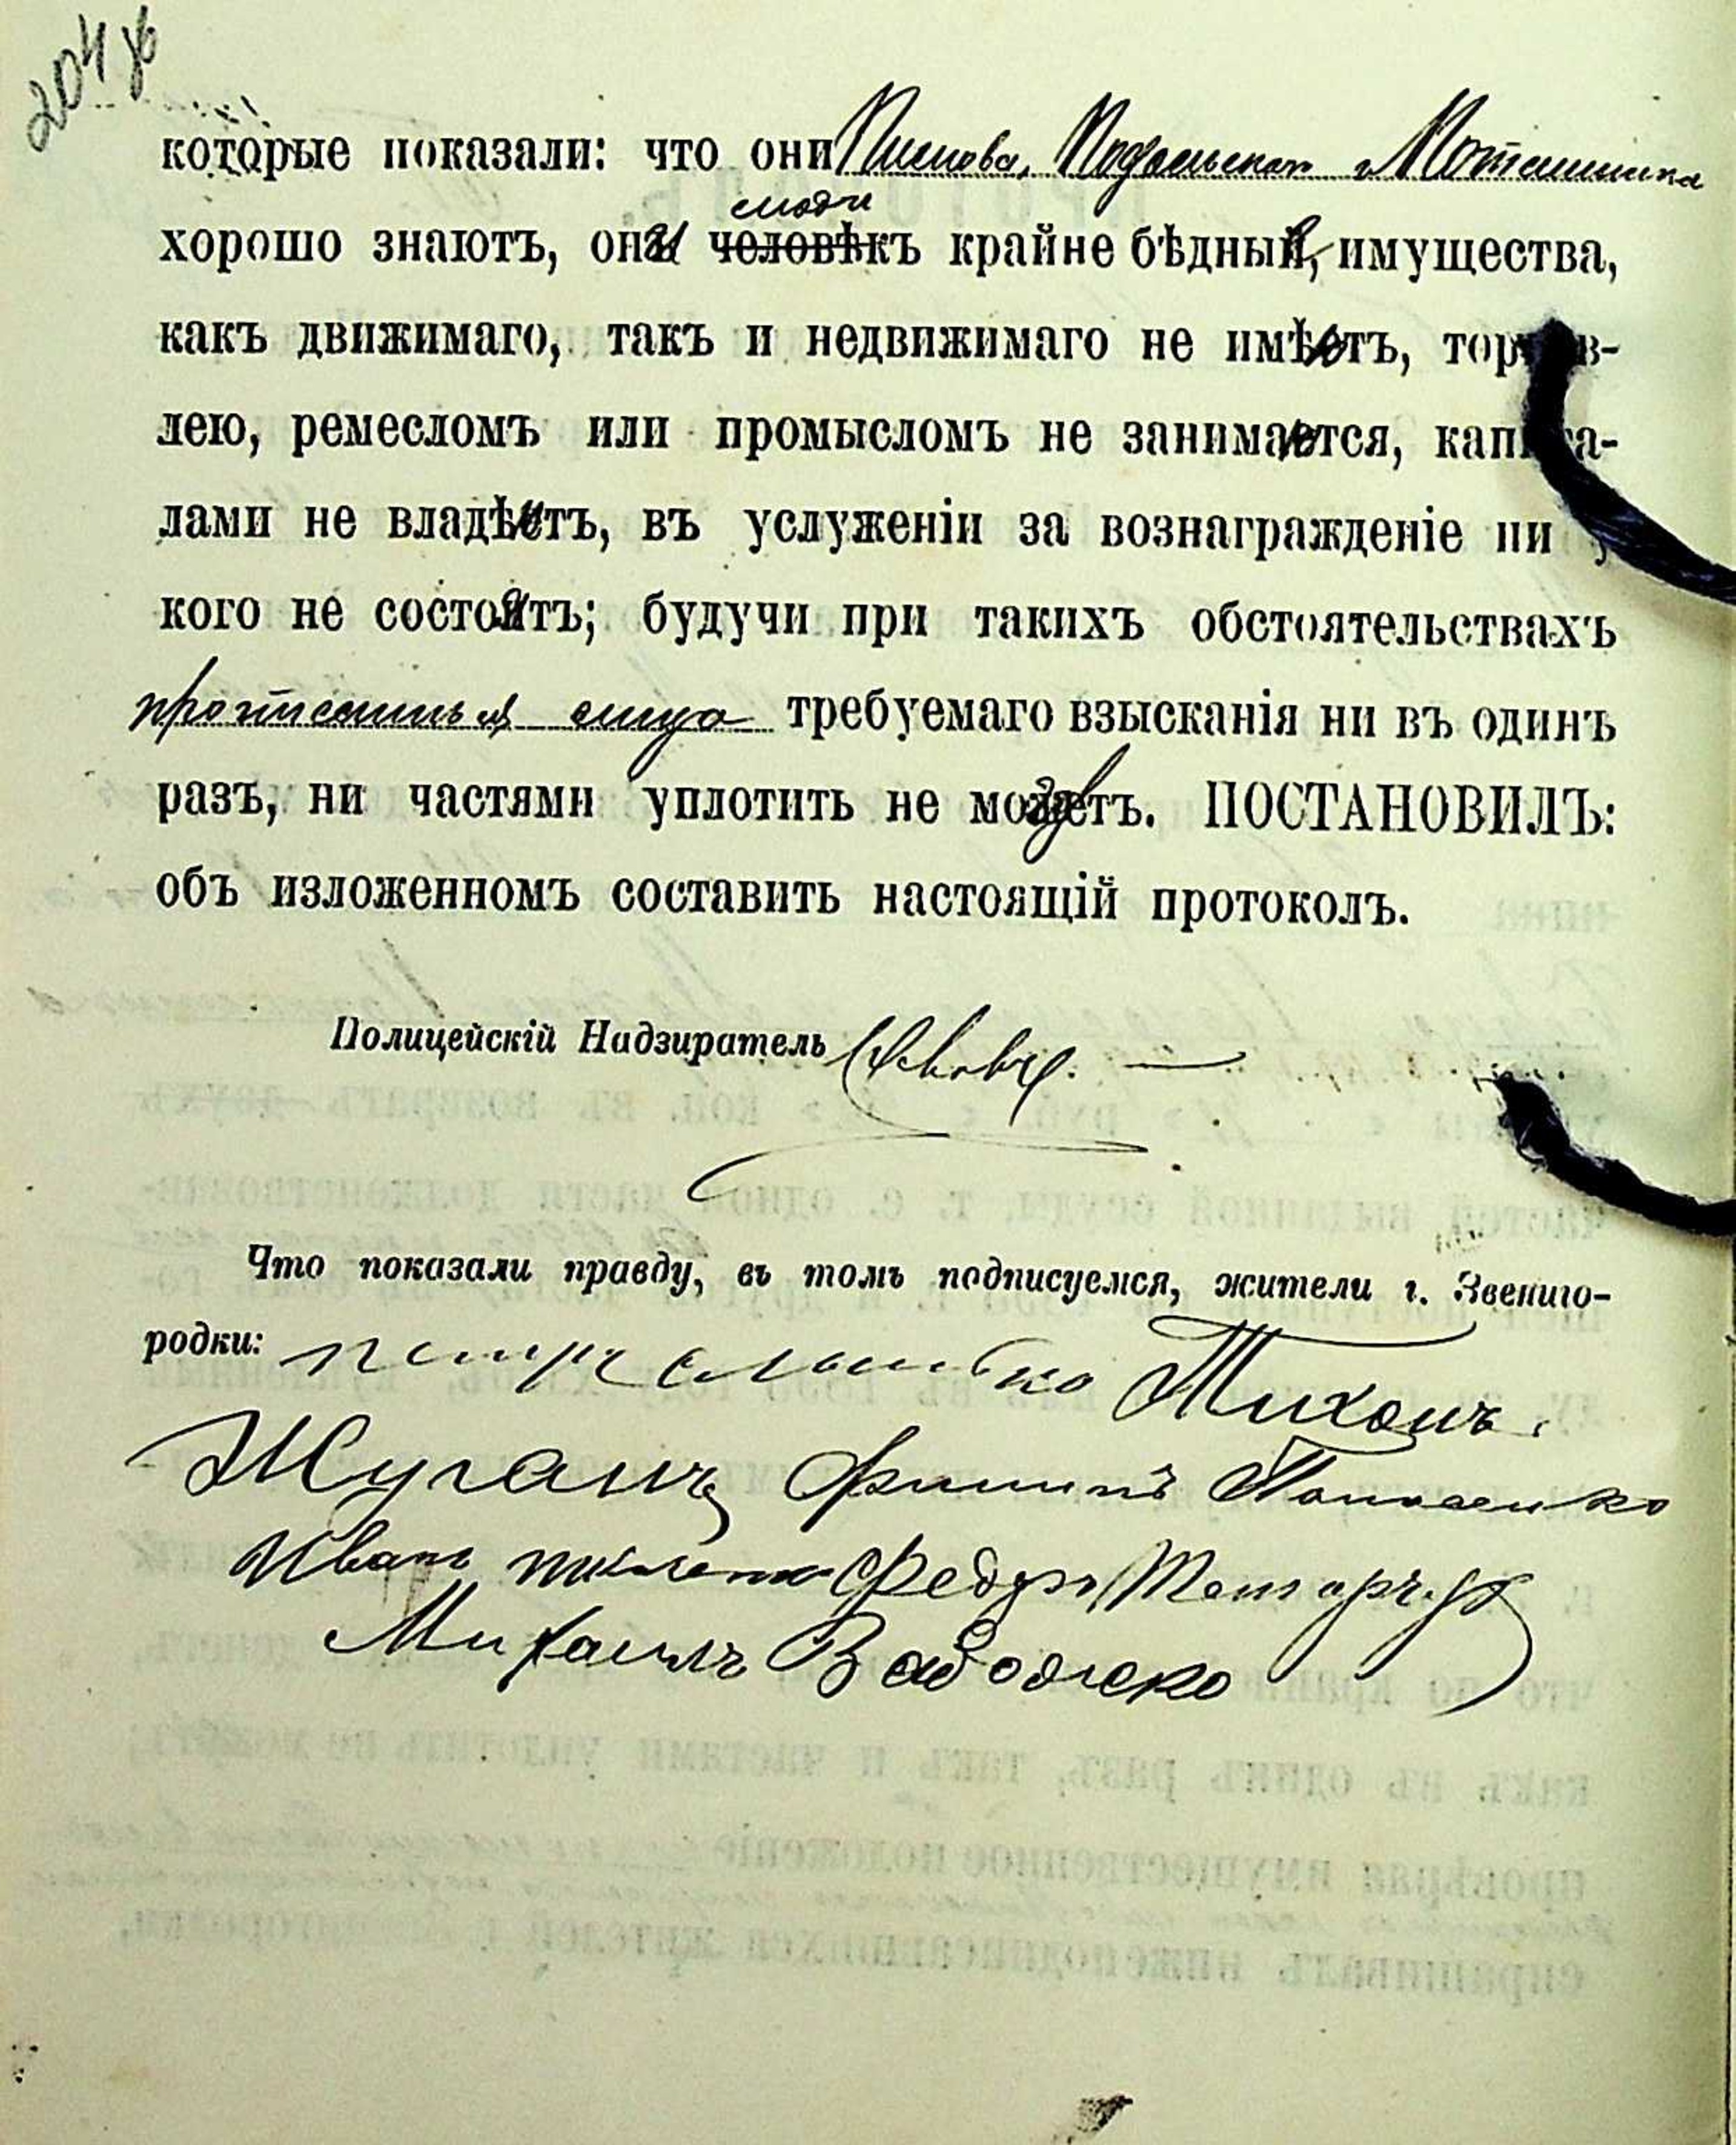 204 об
которые показали: что они
люди
хорошо знаютъ, они человѣкъ крайне бѣдный, имущества,
какъ движимаго, такъ и недвижимаго не имѣютъ, торгов-
лею, ремесломъ или промысломъ не занимаются, капита-
лами не владѣютъ, въ услуженіи за вознагражденіе ни у
кого не состоятъ; будучи при такихъ обстоятельствахъ
требуемаго взысканія ни въ одинъ
разъ, ни частями уплотить не могутъ. ПОСТАНОВИЛЪ:
объ изложенномъ составить настоящій протоколъ.
Полицейскій Надзиратель
Что показали правду, въ томъ подписуемся, жители г. Звениго-
родки: Тихонъ
Жуганъ Филипъ
Иванъ Федоръ
Михаилъ